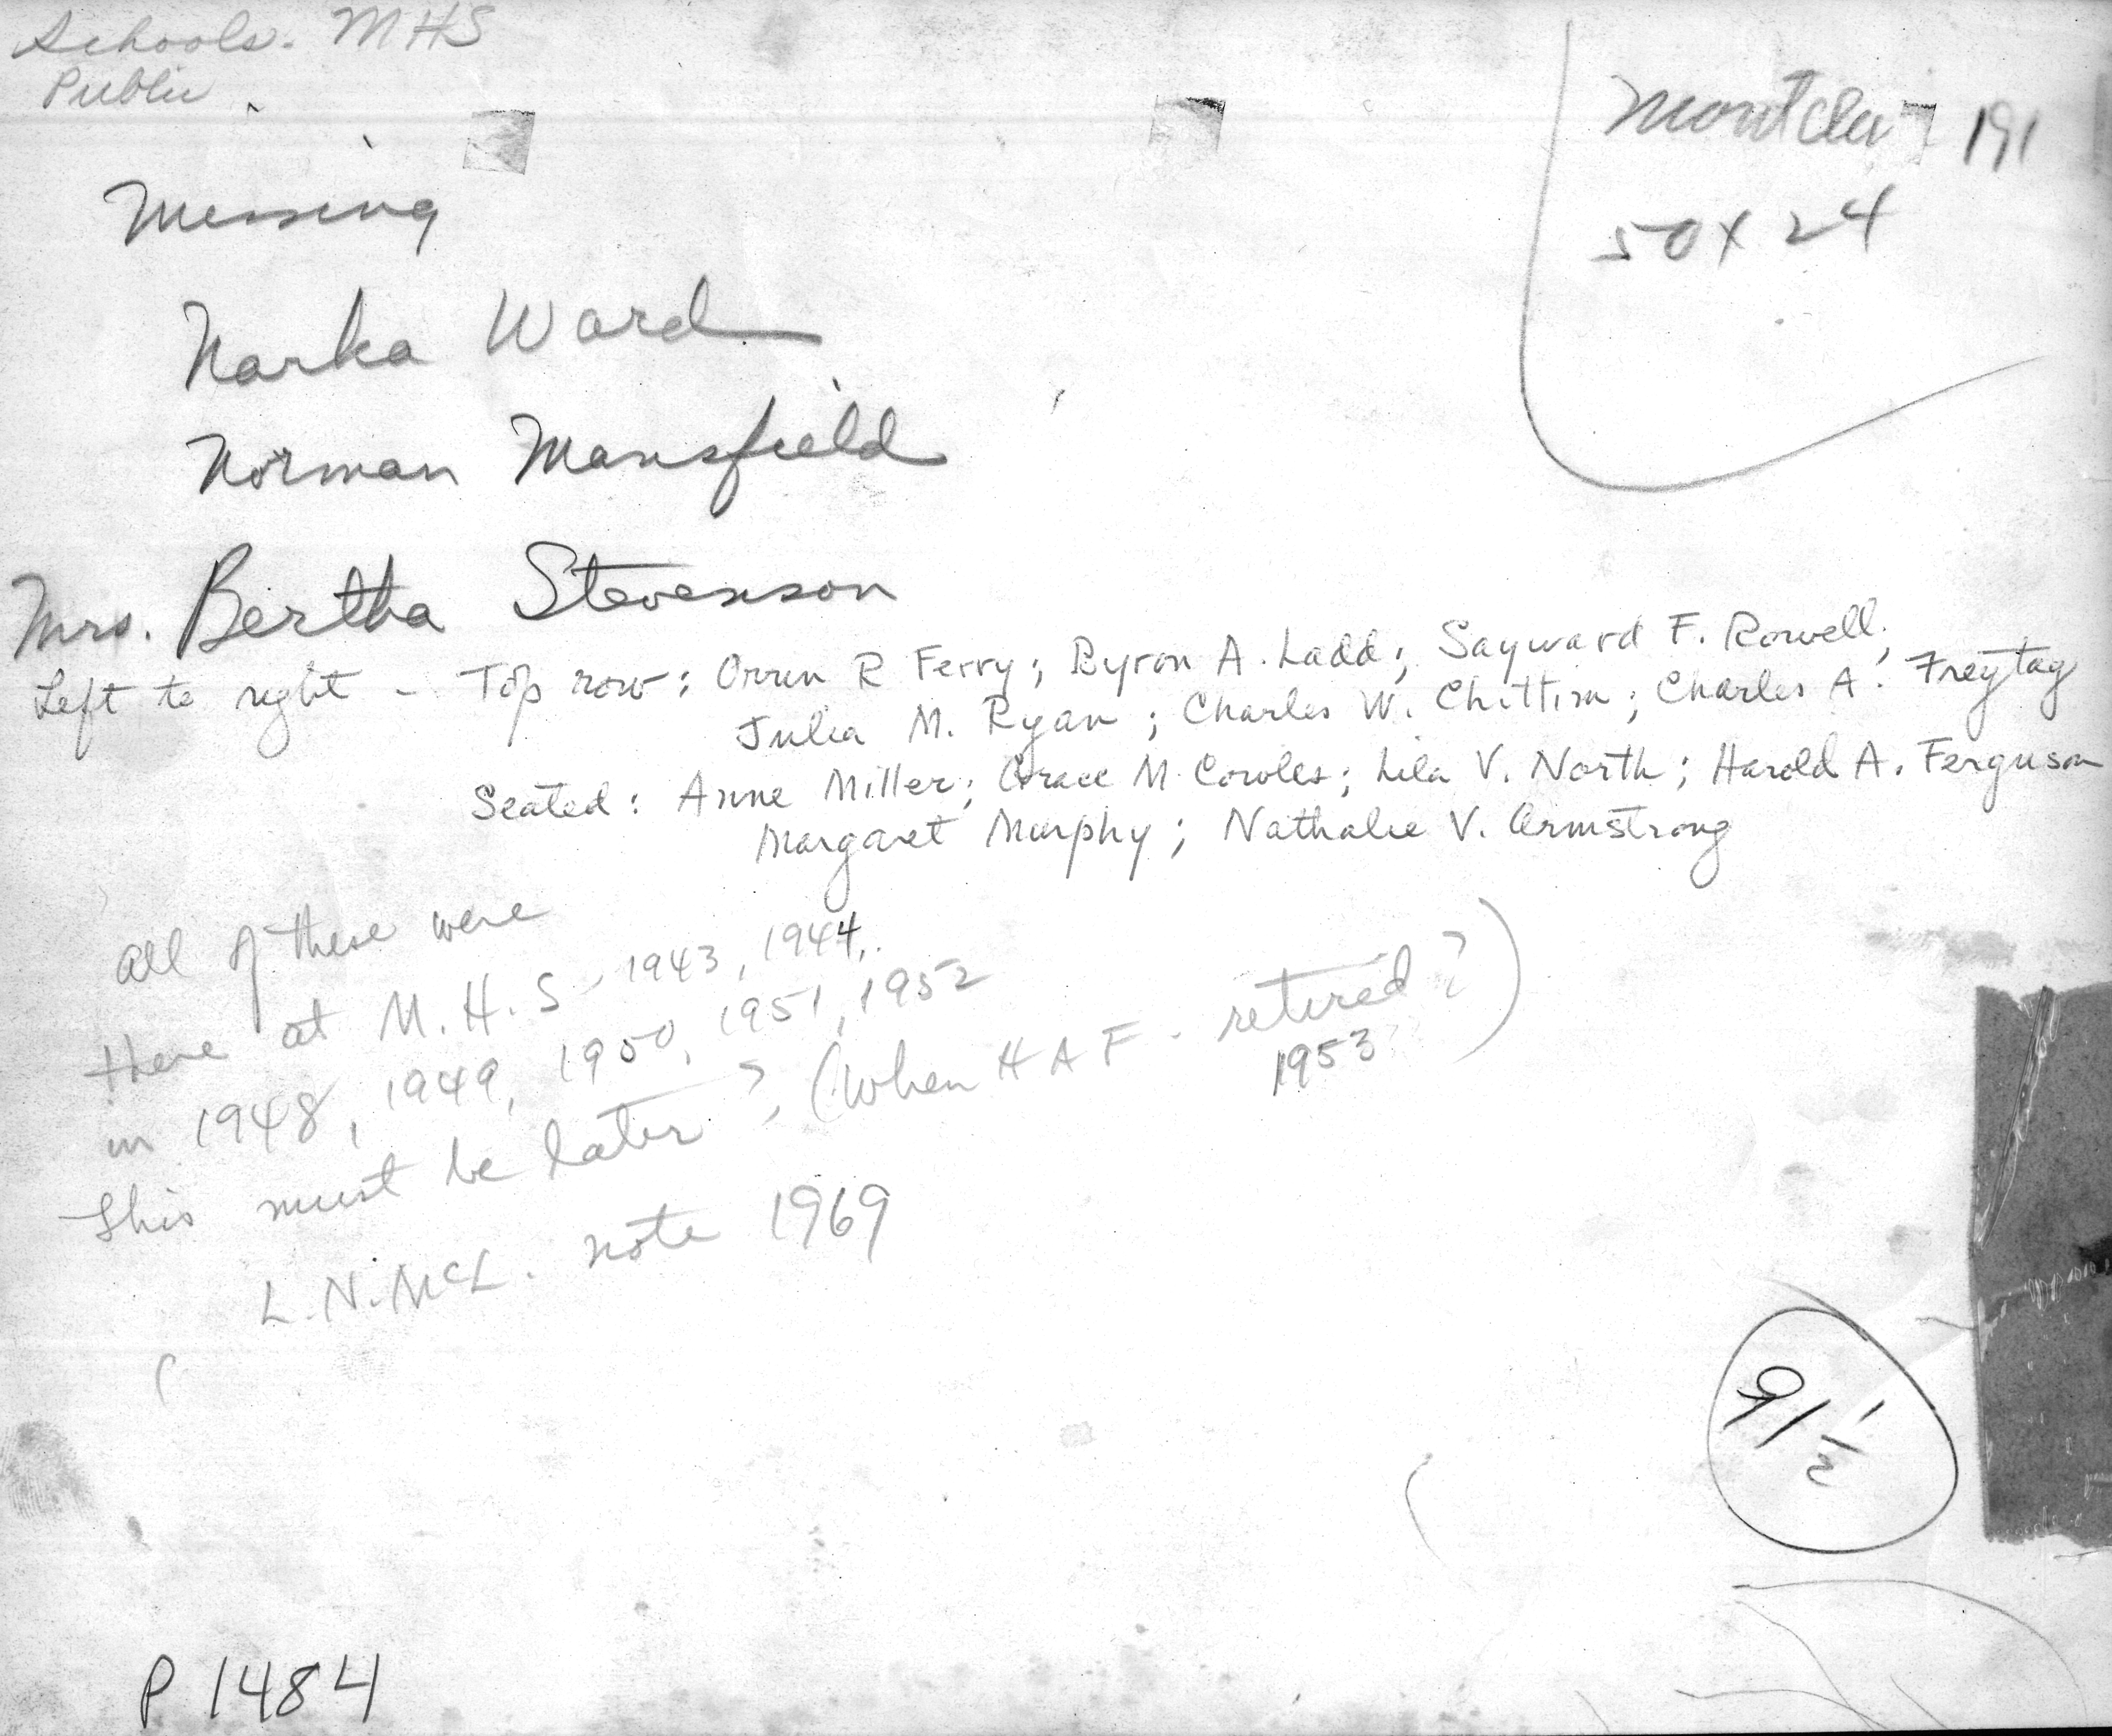 Schools. MHS
Public
Montclair 191
50 X 24
Missing
Narka Ward
Norman Mansfield
Mrs. Bertha Stevenson
Left to right - Top row: Orren R Ferry; Byron A. Ladd; Sayward F. Rowell;
Julia M. Ryan; Charles W. Chittim; Charles A. Freytag
Seated: Anne Miller; Grace M Cowles; Lila V. North; Harold A. Ferguson
Margaret Murphy; Nathalie V. Armstrong
All of these were
there at M.H.S - 1943, 1944,
in 1948, 1949, 1950, 1951, 1952
This must be later?, (When H A F - retired?)
1953
L.N.McL. note 1969
91 1/2
P 1484